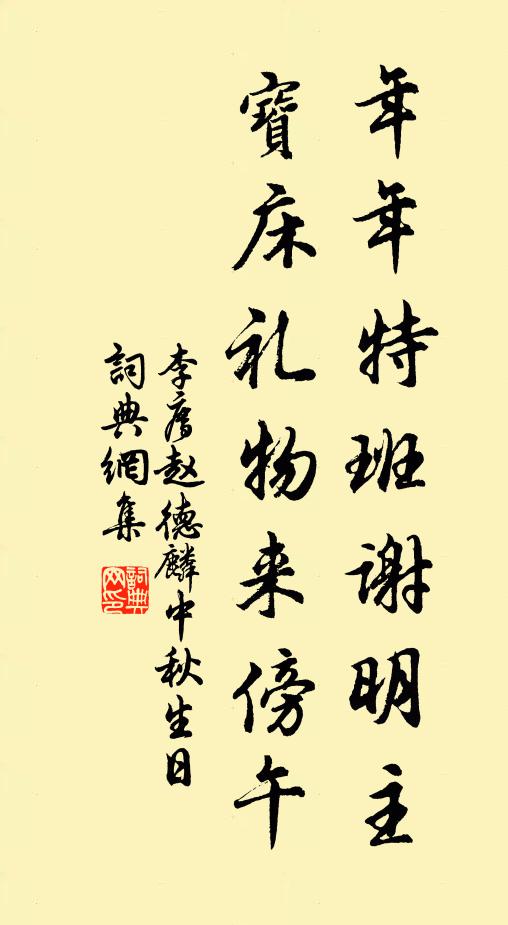 年年特班谢明主
寳床礼物来傍午
李廌赵德麟中秋生日
詞典網集
詞典
网印